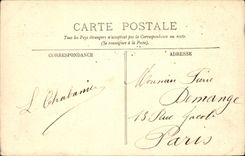 CARTE POSTALE
Tous les Pays étrangers n'acceptent pas la Correspondance au recto
(Se renseigner à la Poste)
CORRESPONDANCE
ADRESSE
L Chabanié
Demange
13 Rue Jacob
Paris